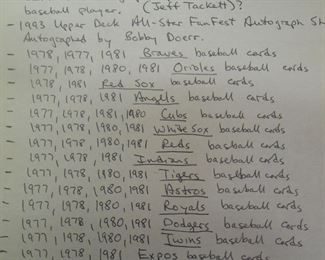 baseball player. (Jeff Tackett)?
- 1993 Upper Deck All-Star FanFest Autograph Sh
Autographed by Bobby Doerr.
- 1978, 1977, 1981 Braves baseball cards
- 1977, 1978, 1980, 1981 Orioles baseball cards
- 1978, 1981 Red Sox baseball cards
- 1977, 1978, 1981 Angels baseball cards
- 1977, 1978, 1981, 1980 Cubs baseball cards
- 1977, 1978, 1980, 1981 White Sox baseball cards
- 1977, 1978, 1980, 1981 Reds baseball cards
- 1977, 1978, 1981 Indians baseball cards
- 1977, 1978, 1980, 1981 Tigers baseball cards
- 1977, 1978, 1980, 1981 Astros baseball cards
- 1977, 1978, 1980, 1981 Royals baseball cards
- 1977, 1978, 1980, 1981 Dodgers baseball cards
- 1977, 1978, 1980, 1981 Twins baseball cards
- 1977, 1978, 1981 Expos baseball cards